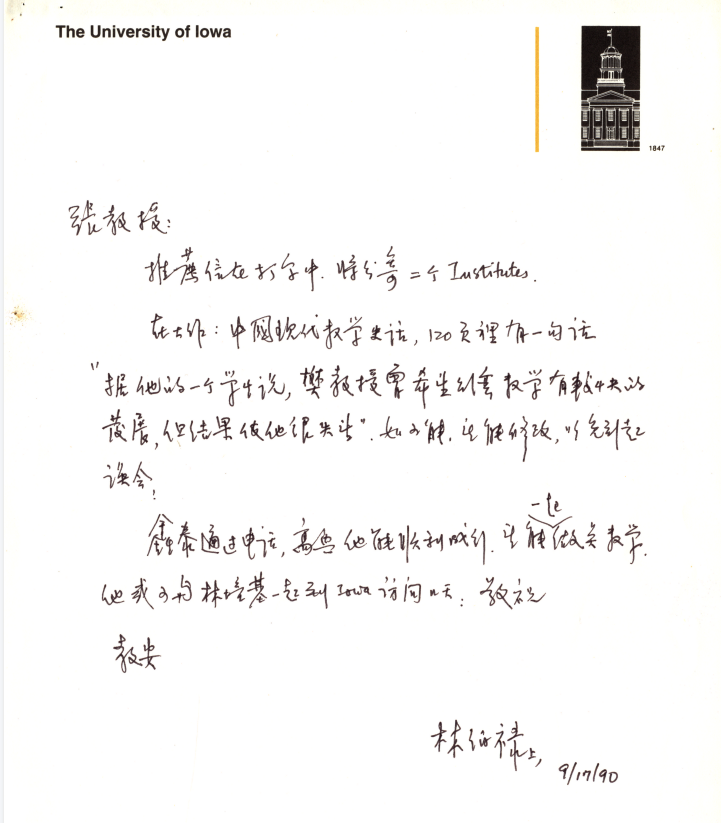 The University of Iowa
1847
張教授:
推薦信在打字中. 將分寄二个 Institutes.
在大作: 中國現代数学史话, 120页裡有一句话
"据他的一个学生说, 樊教授曾希望到會数学有較大的
發展, 但结果使他很失望". 如可能, 望能修改, 以免引起
误会!
鑫泰通过电话, 高兴他能順利成行. 望能做一些
美数学.
他或可与林培基一起到 Iowa 访问几天. 敬祝
教安
林伯禄上,
9/17/90